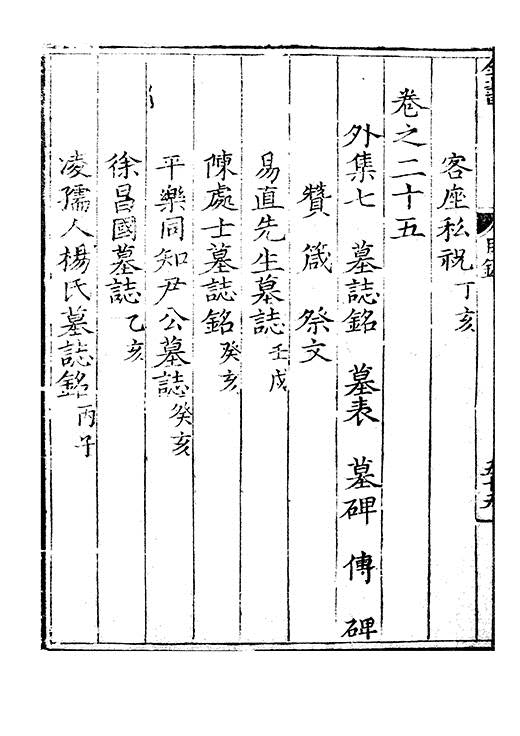 客座私祝丁亥
卷之二十五
外集七 墓誌銘 墓表 墓碑 傳 碑
贊 箴 祭文
易直先生墓誌壬戌
陳處士墓誌銘癸亥
平樂同知尹公墓誌癸亥
徐昌國墓誌乙亥
凌孺人楊氏墓誌銘丙子